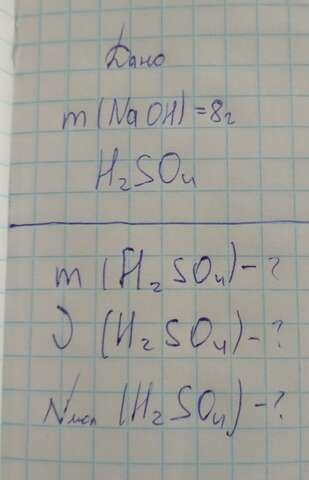 Дано
m(NaOH)=8г
H₂SO₄
m(H₂SO₄)-?
ν(H₂SO₄)-?
Nмол(H₂SO₄)-?